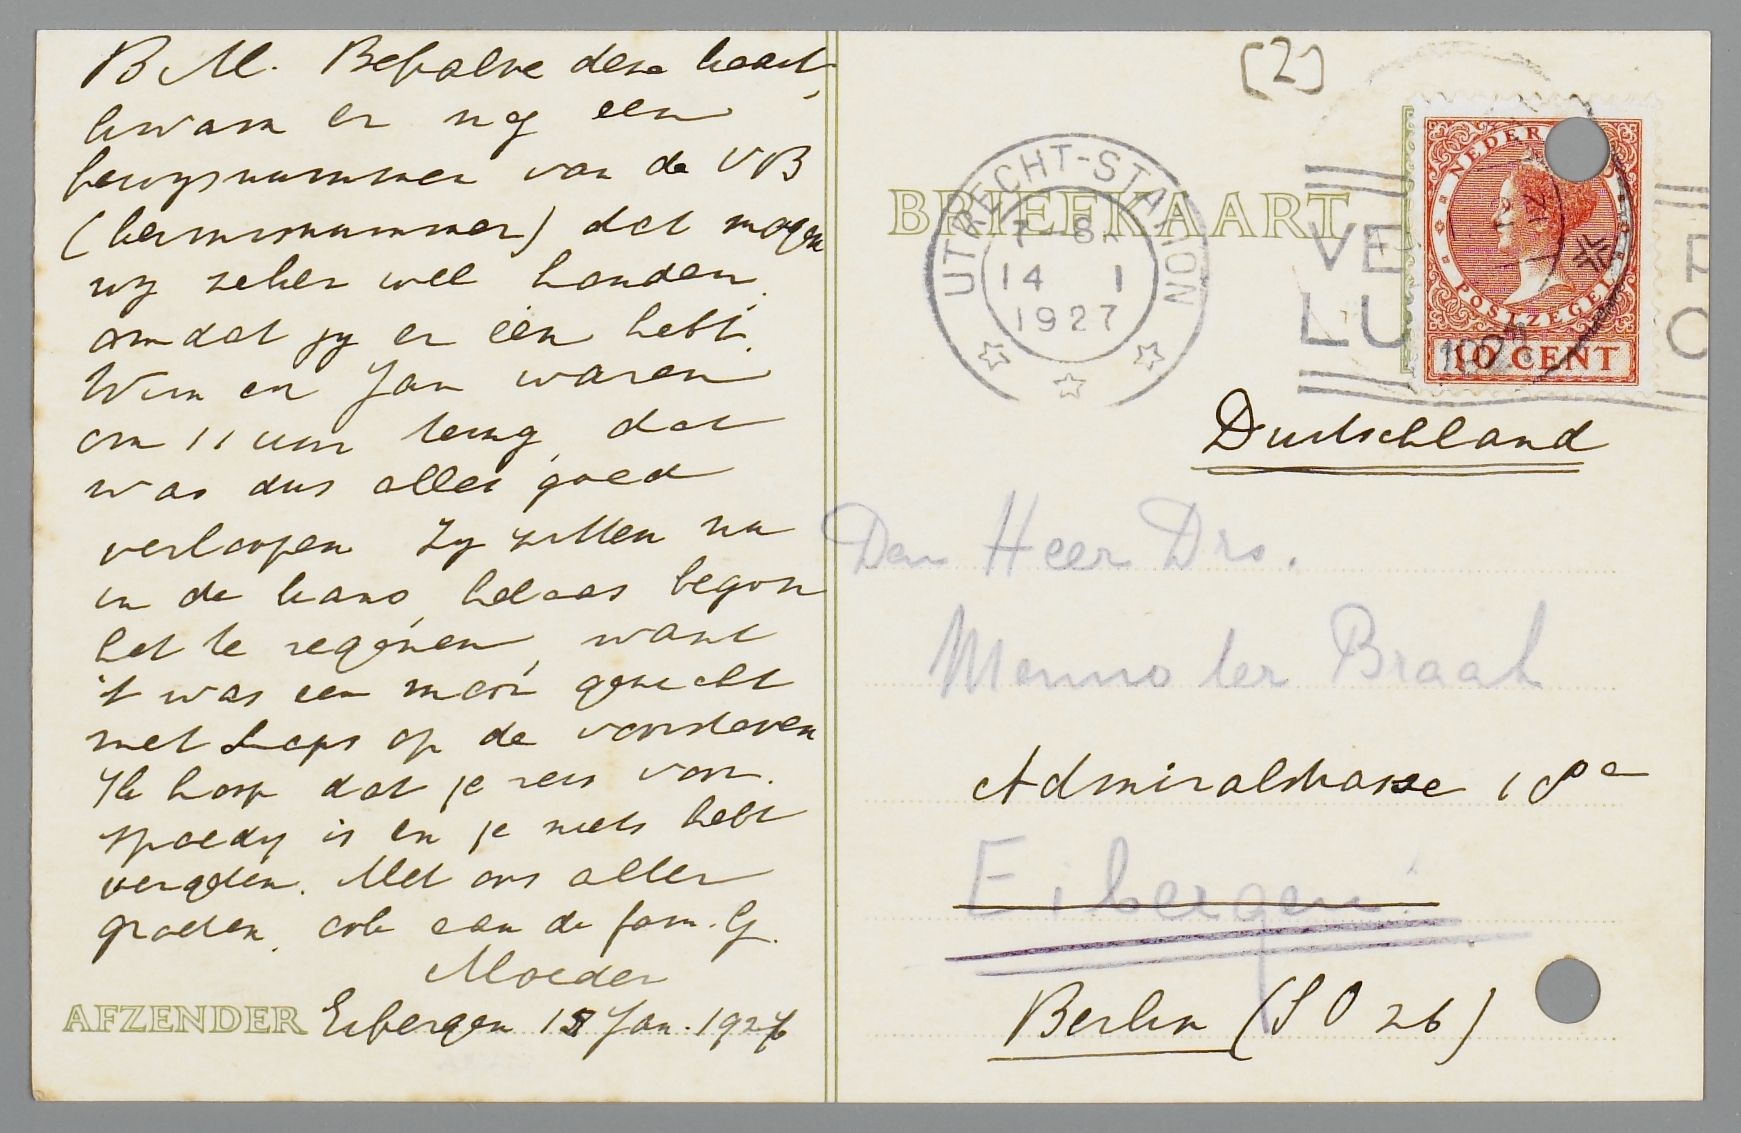 B.M. Behalve deze kaart
kwam er nog een
bewijsnummer van de VB
(kermisnummer) dat mogen
wij zeker wel houden,
omdat jij er één hebt.
Wim en Jan waren
om 11 uur terug, dat
was dus alles goed
verloopen. Zij zitten nu
in de kano, helaas begon
het te regenen, want
't was een mooi gezicht
met Leeps op de voorsteven
Ik hoop dat je reis voor-
spoedig is en je niets hebt
vergeten. Met ons aller
groeten, ook aan de fam. G.
Moeder
AFZENDER Eibergen 13 Jan. 1927
(2)
BRIEFKAART
UTRECHT-STATION
7-8
14 1
1927
NEDERLAND
POSTZEGEL
10 CENT
Duitschland
Den Heer Drs.
Menno ter Braak
Admiralstrasse 18a
Eibergen.
Berlin (SO 26)